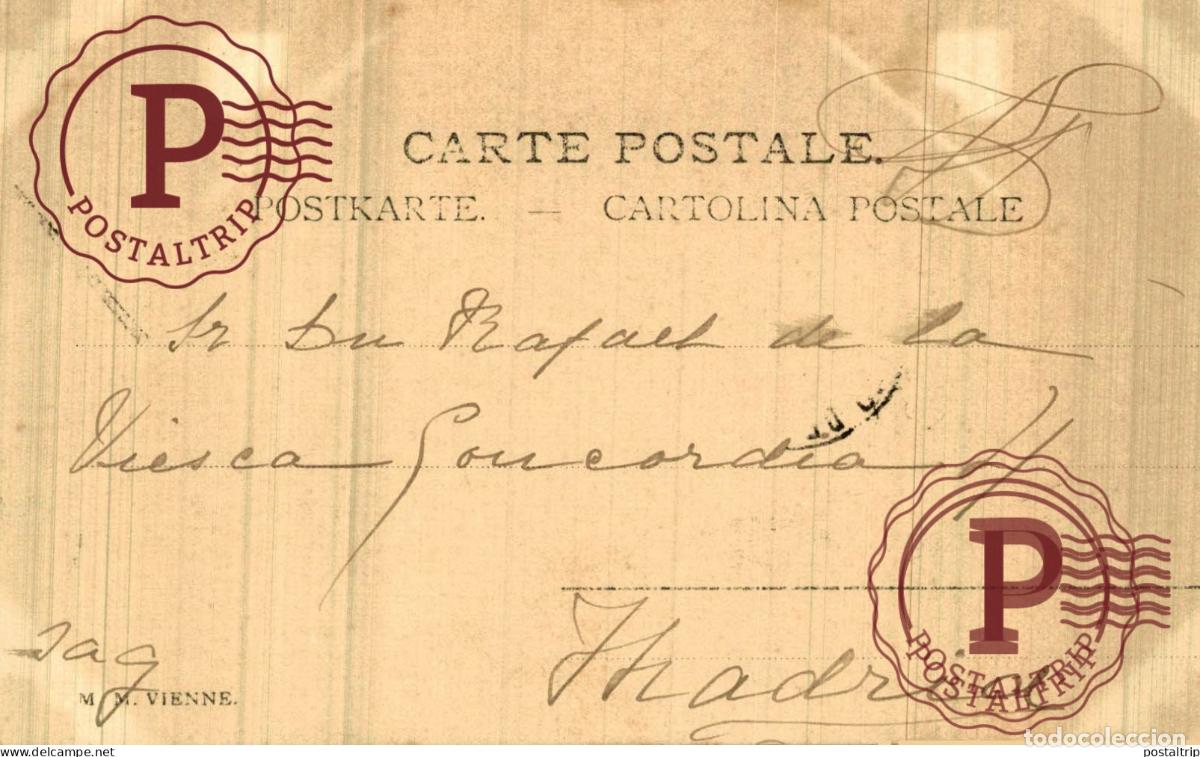 P
POSTALTRIP
CARTE POSTALE.
POSTKARTE. — CARTOLINA POSTALE
Sr Dn Rafael de la
Viesca Concordia 4
Madrid
sag
M. M. VIENNE.
P
POSTALTRIP
todocoleccion
www.delcampe.net
postaltrip